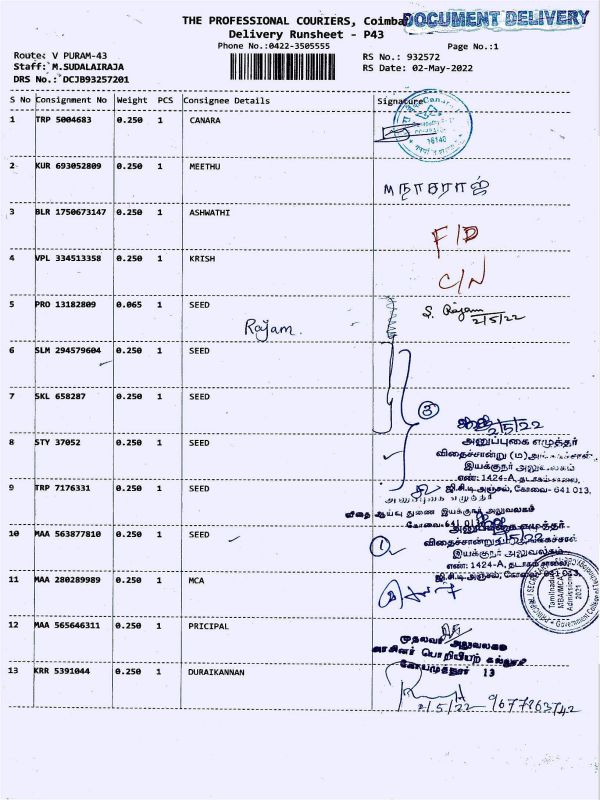 THE PROFESSIONAL COURIERS, Coimba
DOCUMENT DELIVERY
Delivery Runsheet - P43
Phone No.:0422-3505555
Page No.:1
Route: V PURAM-43
RS No.: 932572
Staff: M.SUDALAIRAJA
RS Date: 02-May-2022
DRS No.: DCJB93257201
S No Consignment No Weight PCS Consignee Details Signature
1 TRP 5004683 0.250 1 CANARA
16140
2 KUR 693052809 0.250 1 MEETHU
M நாகராஜ்
3 BLR 1750673147 0.250 1 ASHWATHI
F/D
4 VPL 334513358 0.250 1 KRISH
C/N
5 PRO 13182809 0.065 1 SEED
Rajam.
S. Rajam
2/5/22
6 SLM 294579604 0.250 1 SEED
7 SKL 658287 0.250 1 SEED
3
2/5/22
8 STY 37052 0.250 1 SEED
அனுப்புகை எழுத்தர்
விதைச்சான்று (ம)
இயக்குநர் அலுவலகம்
எண்: 1424-A, தடாகம் சாலை,
9 TRP 7176331 0.250 1 SEED
ஜி.சி.டி.அஞ்சல், கோவை- 641 013.
அனுப்புகை எழுத்தர்
விதை ஆய்வு துணை இயக்குநர் அலுவலகம்
கோவை-641 013
10 MAA 563877810 0.250 1 SEED
1
2/5/22
அனுப்புகை எழுத்தர்
விதைச்சான்று
இயக்குநர் அலுவலகம்
எண்: 1424-A, தடாகம் சாலை,
ஜி.சி.டி.அஞ்சல், கோவை- 641 013.
11 MAA 280289989 0.250 1 MCA
Tamilnadu
MBA/MCA
Admissions
2021
12 MAA 565646311 0.250 1 PRICIPAL
முதல்வர் அலுவலகம்
அரசினர் பொறியியற் கல்லூரி
கோயமுத்தூர் 13
13 KRR 5391044 0.250 1 DURAIKANNAN
2/5/22 9677863742